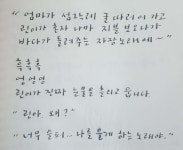 "엄마가 섬그늘에 굴 따러 가고
린이가 혼자 나마 집을 보다가
바다가 들려주는 자장노래에~"
흑흑흑
엉엉엉
린이가 진짜 눈물을 흘리고 있다.
"린아, 왜?"
"너무 슬퍼... 나를 울게 하는 노래야."